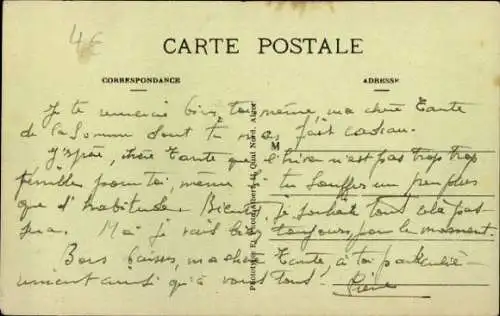 4€
CARTE POSTALE
CORRESPONDANCE
ADRESSE
Je te remercie bien, toi même, ma chère Tante
de la somme dont tu m'as fait cadeau.
J'espère, chère Tante que l'hiver n'est pas trop trop
pénible pour toi, même si tu souffres un peu plus
que d'habitude. Bientôt, je souhaite tout cela
Moi je vais bien toujours, pour le moment.
Bons baisers, ma chère Tante à toi particuliè-
rement ainsi qu'à vous tous!
Pierre
M
Albert, 41, Quai Nord, Alger